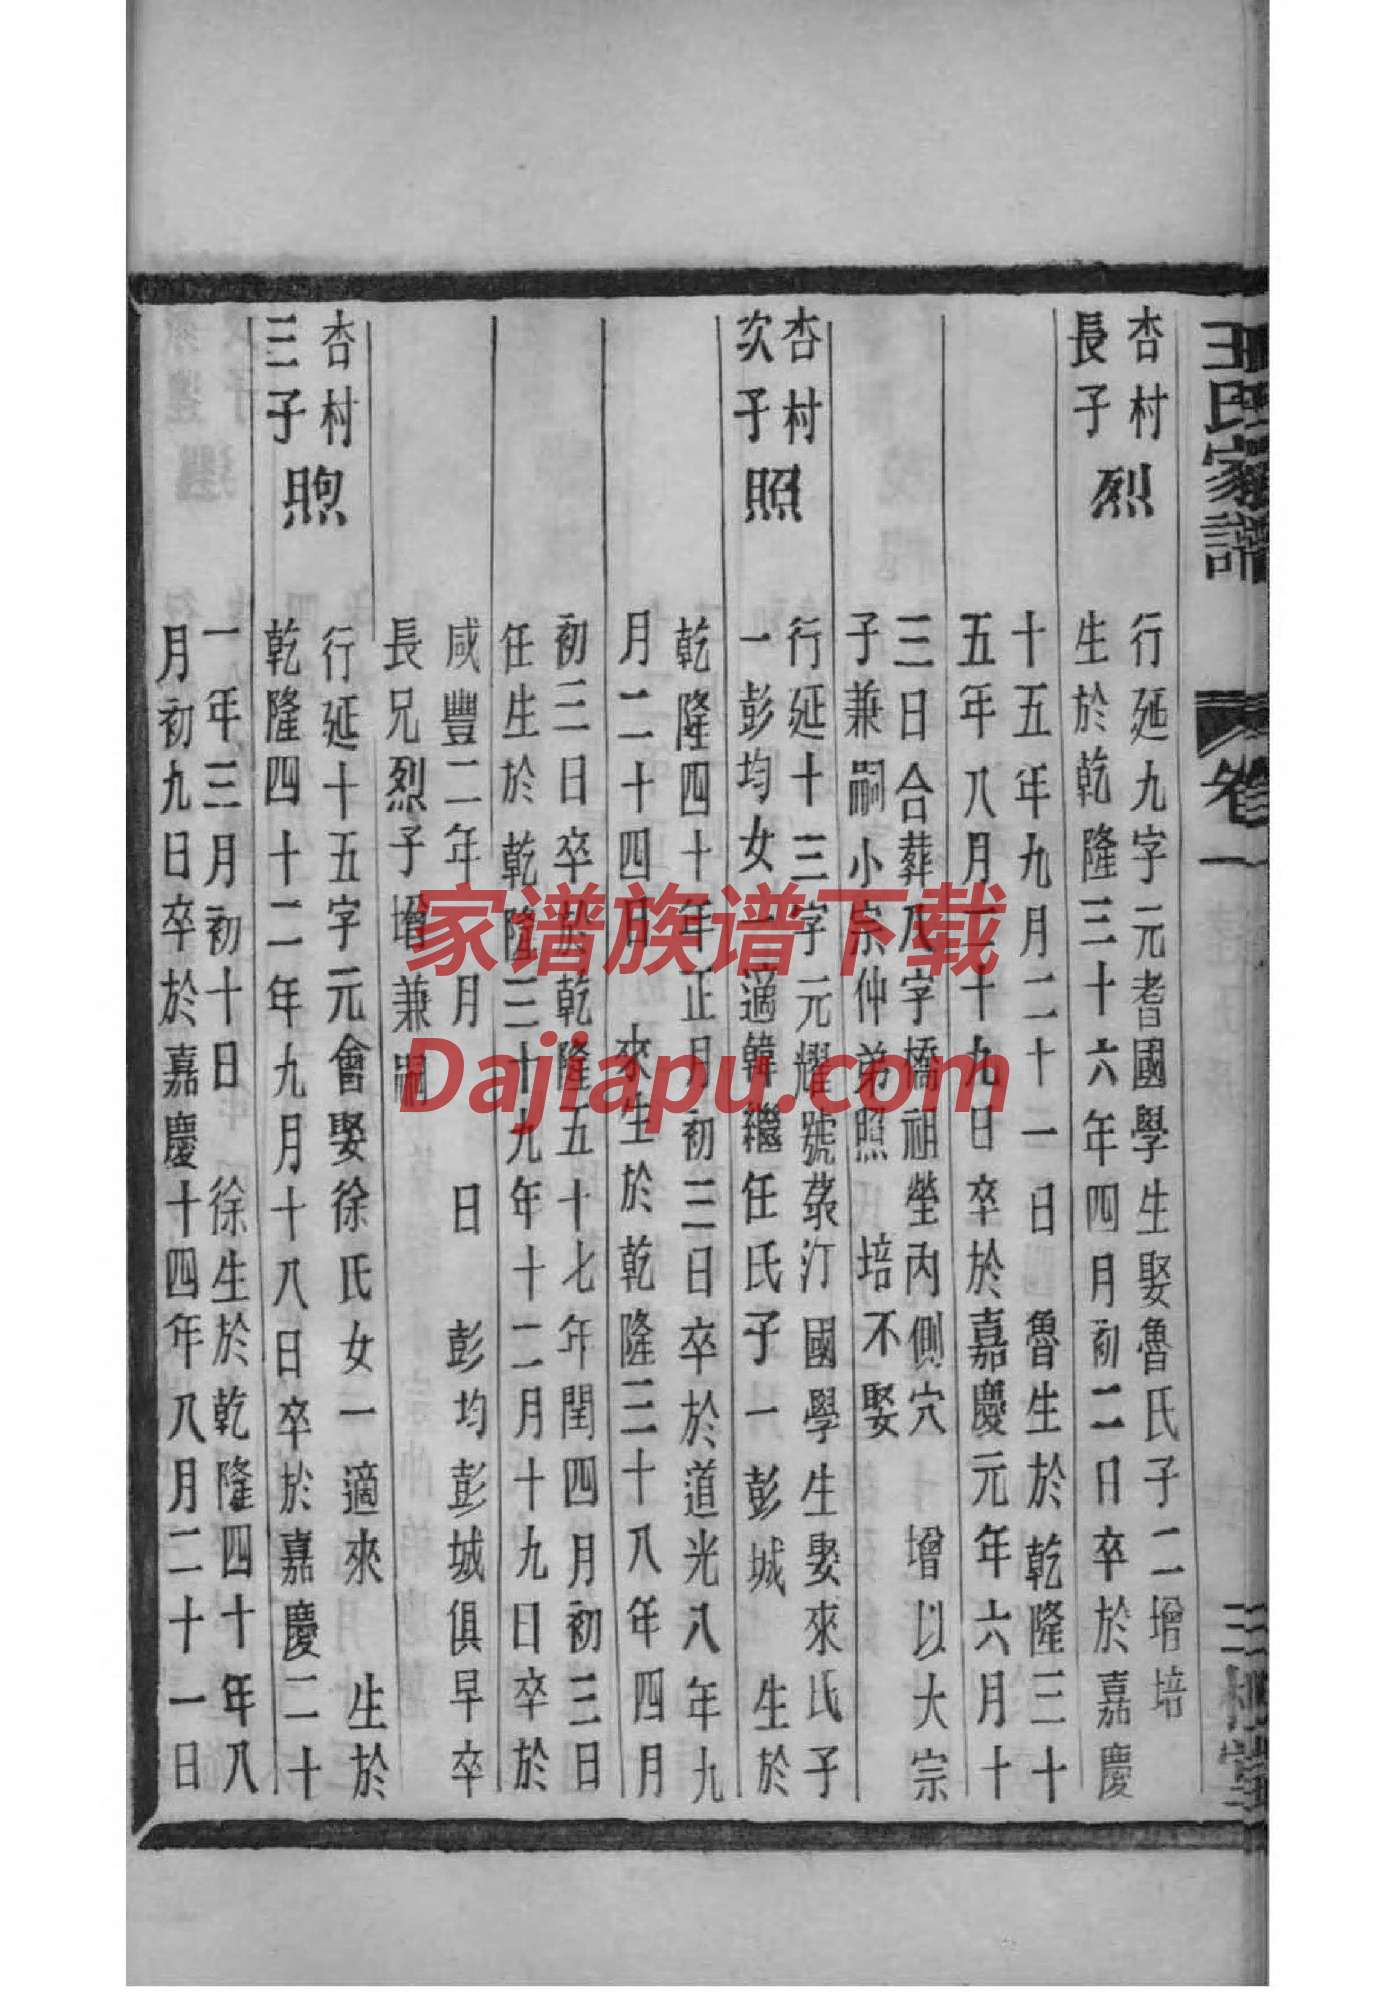 王氏家譜
卷一
三槐堂
杏村
長子
烈
行延九字元耆國學生娶魯氏子二增培
生於乾隆三十六年四月初二日卒於嘉慶
十五年九月二十一日 魯生於乾隆三十
五年八月二十九日卒於嘉慶元年六月十
三日合葬八字橋祖塋內側穴 增以大宗
子兼嗣小宗仲弟照 培不娶
杏村
次子
照
行延十三字元耀號 汀國學生娶來氏子
一彭均女一適韓繼任氏子一彭城 生於
乾隆四十年正月初三日卒於道光八年九
月二十四日 來生於乾隆三十八年四月
初三日卒於乾隆五十七年閏四月初三日
任生於乾隆三十九年十二月十九日卒於
咸豐二年 月 日 彭均彭城俱早卒
長兄烈子增兼嗣
杏村
三子
煦
行延十五字元會娶徐氏女一適來 生於
乾隆四十二年九月十八日卒於嘉慶二十
一年三月初十日 徐生於乾隆四十年八
月初九日卒於嘉慶十四年八月二十一日
家谱族谱下载
Dajiapu.com